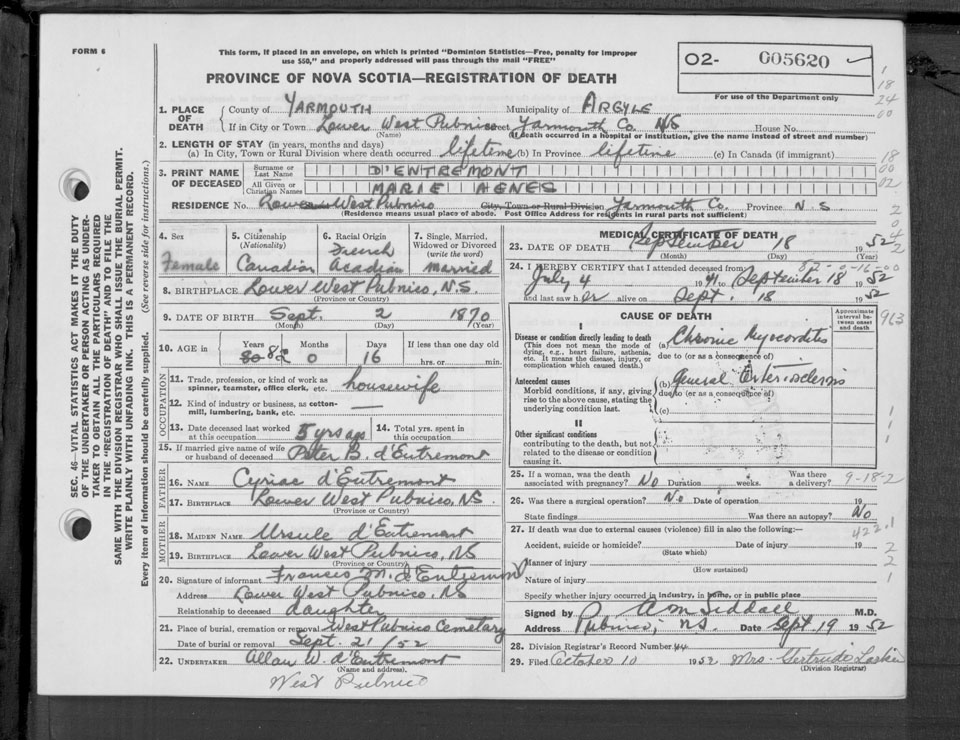 FORM 6
This form, if placed in an envelope, on which is printed "Dominion Statistics—Free, penalty for improper
use $50," and properly addressed will pass through the mail "FREE"
PROVINCE OF NOVA SCOTIA—REGISTRATION OF DEATH
02- 005620
For use of the Department only
1. PLACE OF DEATH County of YARMOUTH Municipality of ARGYLE
If in City or Town Lower West Pubnico Street Yarmouth Co. N.S House No.
(Name) (If death occurred in a hospital or institution, give the name instead of street and number)
2. LENGTH OF STAY (in years, months and days)
(a) In City, Town or Rural Division where death occurred lifetime (b) In Province lifetime (c) In Canada (if immigrant)
3. PRINT NAME OF DECEASED Surname or Last Name D'ENTREMONT
All Given or Christian Names MARIE AGNES
RESIDENCE No. Lower West Pubnico City, Town or Rural Division Yarmouth Co. Province N.S
(Residence means usual place of abode. Post Office Address for residents in rural parts not sufficient)
4. Sex Female
5. Citizenship (Nationality) Canadian
6. Racial Origin French Acadian
7. Single, Married, Widowed or Divorced (write the word) married
8. BIRTHPLACE Lower West Pubnico, N.S.
(Province or Country)
9. DATE OF BIRTH Sept. 2 1870
(Month) (Day) (Year)
10. AGE in Years 80 82 Months 0 Days 16 If less than one day hrs. or min.
OCCUPATION
11. Trade, profession, or kind of work as spinner, teamster, office clerk, etc. housewife
12. Kind of industry or business, as cotton-mill, lumbering, bank, etc. —
13. Date deceased last worked at this occupation 5 yrs ago 14. Total yrs. spent in this occupation
15. If married give name of wife or husband of deceased Peter B. d'Entremont
FATHER
16. NAME Cyriac d'Entremont
17. BIRTHPLACE Lower West Pubnico, NS
(Province or Country)
MOTHER
18. MAIDEN NAME Ursule d'Entremont
19. BIRTHPLACE Lower West Pubnico, NS
(Province or Country)
20. Signature of informant Frances M. d'Entremont
Address Lower West Pubnico, NS
Relationship to deceased daughter
21. Place of burial, cremation or removal West Pubnico Cemetary
Date of burial or removal Sept. 21/52
22. UNDERTAKER Allan W. d'Entremont
(Name and address)
West Pubnico
MEDICAL CERTIFICATE OF DEATH
23. DATE OF DEATH September 18 1952
(Month) (Day) (Year)
24. I HEREBY CERTIFY that I attended deceased from
July 4 1941 to September 18 1952
and last saw her alive on Sept. 18 1952
CAUSE OF DEATH
Approximate interval between onset and death
I
Disease or condition directly leading to death
(This does not mean the mode of dying, e.g., heart failure, asthenia, etc. It means the disease, injury, or complication which caused death.)
(a) Chronic Myocorditis
due to (or as a consequence of)
Antecedent causes
Morbid conditions, if any, giving rise to the above cause, stating the underlying condition last.
(b) General Arteriosclerosis
due to (or as a consequence of)
(c)
II
Other significant conditions
contributing to the death, but not related to the disease or condition causing it.
25. If a woman, was the death associated with pregnancy? No Duration weeks. Was there a delivery?
26. Was there a surgical operation? No Date of operation 19
State findings Was there an autopsy? No
27. If death was due to external causes (violence) fill in also the following:—
Accident, suicide or homicide? Date of injury 19
(State which)
Manner of injury
(How sustained)
Nature of injury
Specify whether injury occurred in industry, in home, or in public place
Signed by M.D.
Address Pubnico, NS. Date Sept. 19 1952
28. Division Registrar's Record Number 44
29. Filed October 10 1952 Mrs. Gertrude Larkin
(Division Registrar)
SEC. 46—VITAL STATISTICS ACT MAKES IT THE DUTY
OF THE UNDERTAKER OR PERSON ACTING AS UNDER-
TAKER TO OBTAIN ALL THE PARTICULARS REQUIRED
IN THE "REGISTRATION OF DEATH" AND TO FILE THE
SAME WITH THE DIVISION REGISTRAR WHO SHALL ISSUE THE BURIAL PERMIT.
WRITE PLAINLY WITH UNFADING INK. THIS IS A PERMANENT RECORD.
Every item of information should be carefully supplied. (See reverse side for instructions.)
1
18
24
00
18
00
02
2
0
4
2
963
1
1
1
9-18-2
422.1
2
2
1